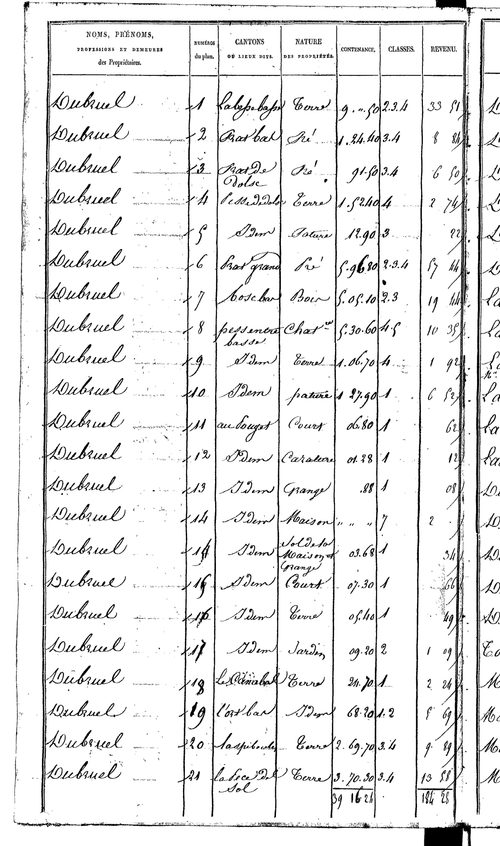 NOMS, PRÉNOMS,
PROFESSIONS ET DEMEURES
des Propriétaires.
NUMÉROS
du plan.
CANTONS
OU LIEUX DITS.
NATURE
DES PROPRIÉTÉS.
CONTENANCE.
CLASSES.
REVENU.
Dubruel 1 Terre 9 „ 50 2.3.4 33 51
Dubruel 2 Prat bat Pré 1.24.40 3.4 8 24
Dubruel 3 Prat De Pré 91.50 3.4 6 50
Dubruel 4 Terre 1.52.40 4 2 74
Dubruel 5 Idem Pature 12.90 3 22
Dubruel 6 Prat grand Pré 5.96.80 2.3.4 57 44
Dubruel 7 Bosc bar Bois 5.05.10 2.3 19 44
Dubruel 8 Chat 5.30.60 4.5 10 35
basse
Dubruel 9 Idem Terre 1.06.70 4 1 92
Dubruel 10 Idem pature 1 27.90 1 6 52
Dubruel 11 au Pouget Court 06.80 1 62
Dubruel 12 Idem 01.28 1 12
Dubruel 13 Idem Grange .88 1 08
Dubruel 14 Idem Maison „ „ „ 7 2
Dubruel Idem Sol de la Maison et Grange 03.68 1 34
Dubruel Idem Court 07.30 1 66
Dubruel 16 Idem Terre 05.40 1 49
Dubruel 17 Idem Jardin 09.20 2 1 09
Dubruel 18 Terre 24.70 1 2 24
Dubruel 19 l'ort bas Idem 68.20 1.2 5 69
Dubruel 20 Terre 2.69.70 3.4 9 89
Dubruel 21 Terre 3.70.30 3.4 13 58
sol
39 16 24 184 28